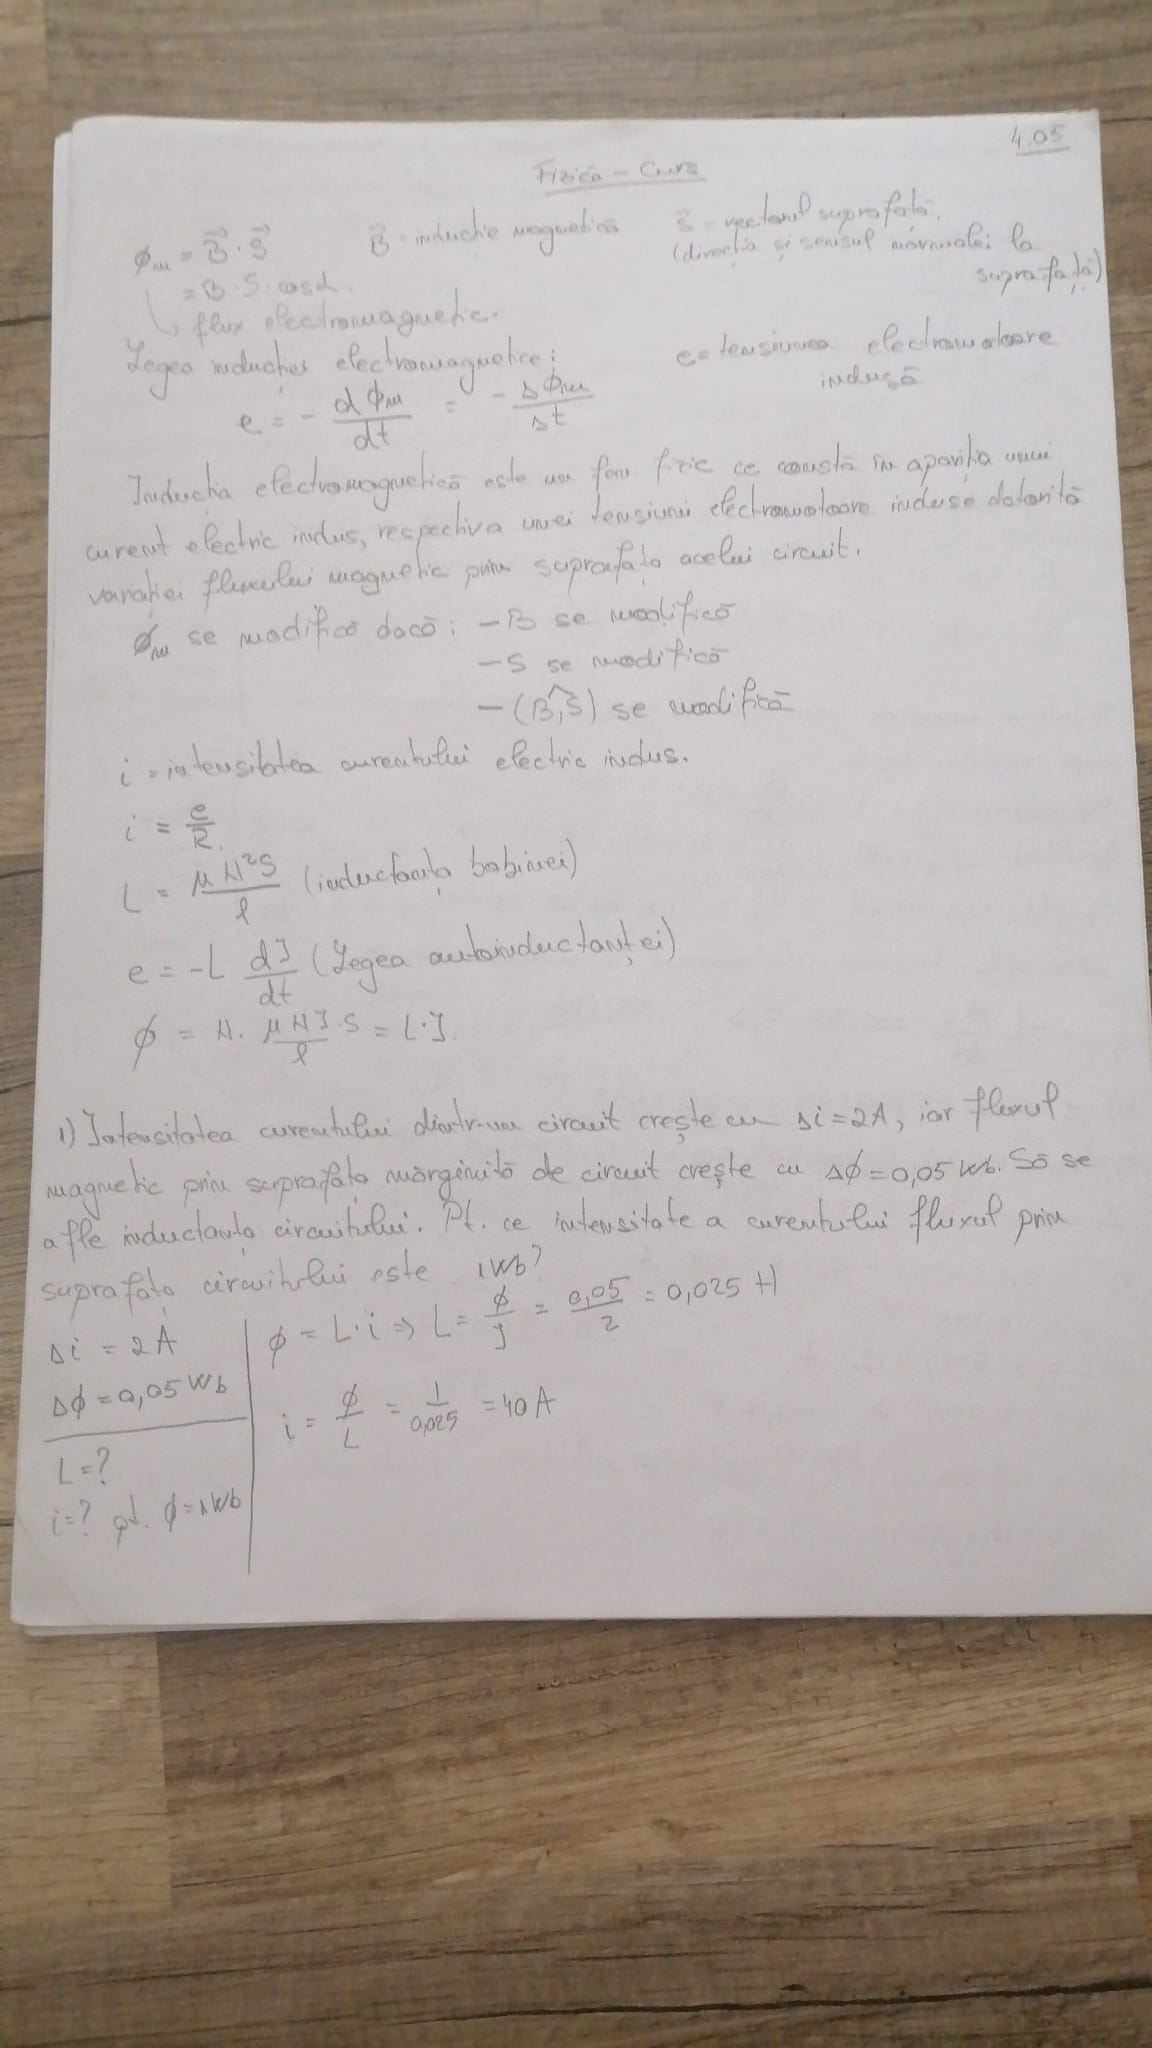 4.05
Fizică - Curs
Φm = B⃗ · S⃗
B⃗ = inducție magnetică
S⃗ = vectorul suprafață.
(direcția și sensul normalei la
suprafață)
= B · S · cosα.
↳ flux electromagnetic.
Legea inducției electromagnetice:
e = tensiunea electromotoare
indusă
e = - dΦm/dt = - ΔΦm/Δt
Inducția electromagnetică este un fen fizic ce constă în apariția unui
curent electric indus, respectiv a unei tensiuni electromotoare induse datorită
variației fluxului magnetic prin suprafața acelui circuit.
Φm se modifică dacă: - B se modifică
- S se modifică
- (B,S) se modifică
i = intensitatea curentului electric indus.
i = e/R.
L = μN²S/l (inductanța bobinei)
e = -L dI/dt (Legea autoinductanței)
Φ = N · μNI/l · S = L·I.
1) Intensitatea curentului dintr-un circuit crește cu Δi = 2A, iar fluxul
magnetic prin suprafața mărginită de circuit crește cu Δφ = 0,05 Wb. Să se
afle inductanța circuitului. Pt. ce intensitate a curentului fluxul prin
suprafața circuitului este 1Wb?
Δi = 2A
Δφ = 0,05 Wb
L = ?
i = ? pt. φ = 1Wb
φ = L·i ⇒ L = φ/I = 0,05/2 = 0,025 H
i = φ/L = 1/0,025 = 40 A